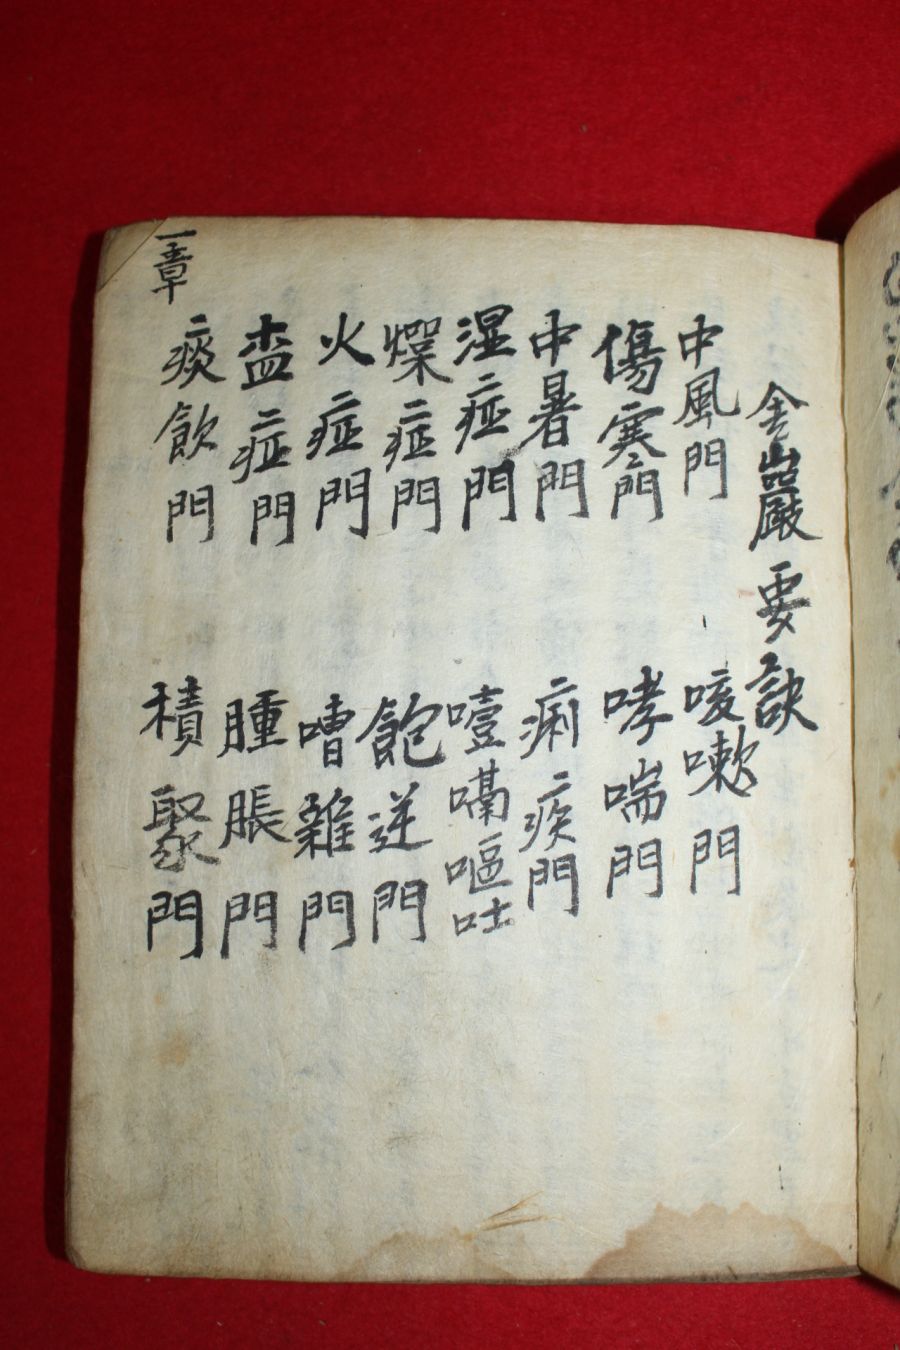 舍巖要訣
中風門
傷寒門
中暑門
湿症門
燥症門
火症門
盃症門
痰飮門
咳嗽門
哮喘門
痢疾門
噎嗝嘔吐
飽逆門
嘈雜門
腫脹門
積聚門
一章